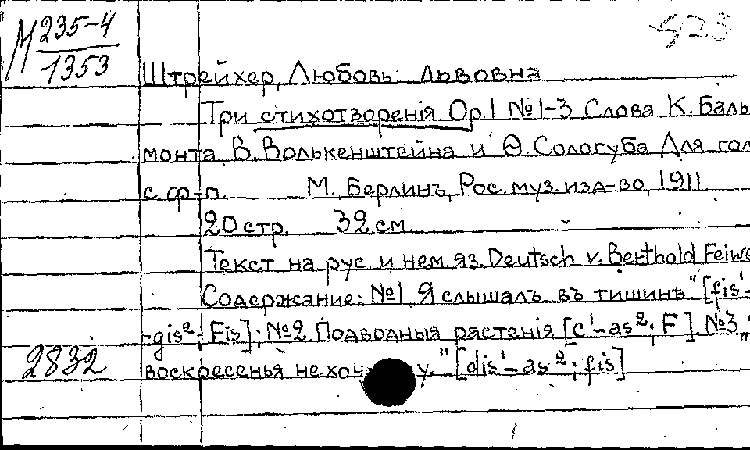 М 235-4
1353
Штрейхер, Любовь Львовна
Три стихотворенія Op.1 №1-3 Слова К. Баль
монта, В. Волькенштейна и Ѳ. Сологуба Для гол
с ф-п. М., Берлинъ, Рос. муз. изд-во, 1911
20 стр. 32 см
Текст на рус. и нем яз. Deutsch v. Berthold Feiwe
Содержание: №1 Я слышалъ въ тишинѣ" [fis'-
-gis²; Fis]; №2 Подводныя растенія [c'-as²; F] №3 „
воскресенья не "[dis'-as²; fis]
2832